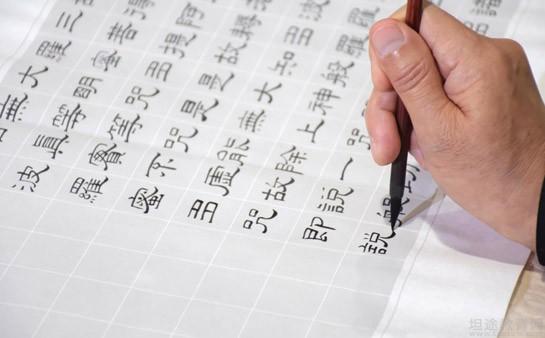 得阿耨多羅
三菩提故知般
羅蜜多是大神
大明咒是無上
無等等咒能除一切
真實不虛故說般
波羅蜜多咒即說
坦途教育网